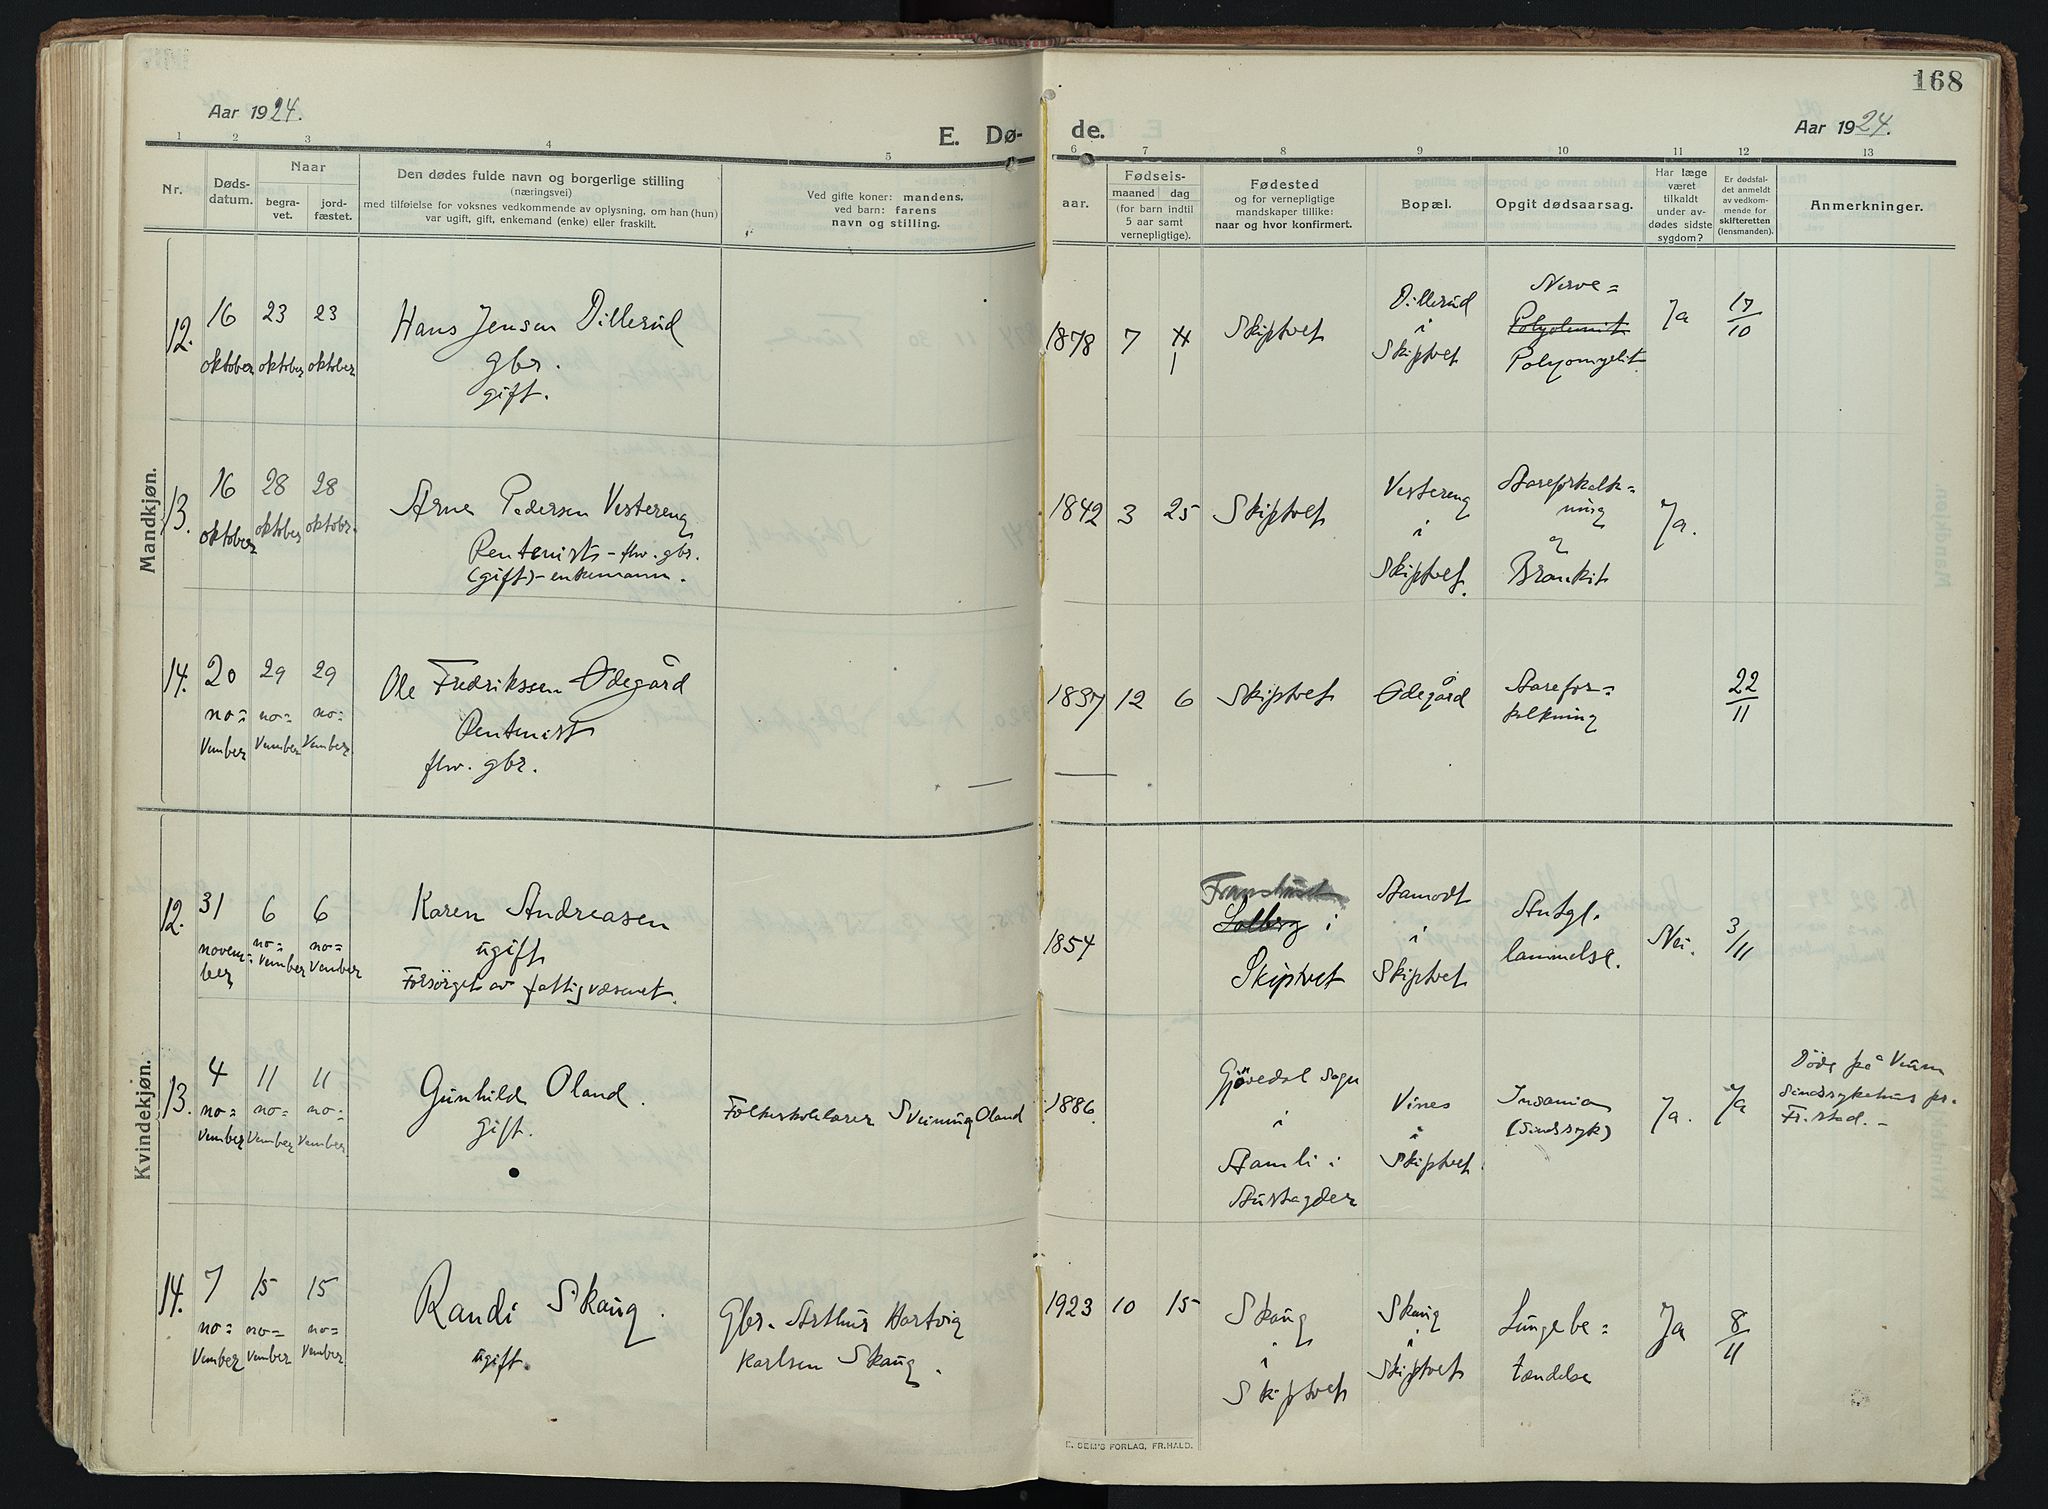 168
Aar 1924.
E. Dø-
de.
Aar 1924.
1 2 3 4 5 6 7 8 9 10 11 12 13
Nr.
Døds-
datum.
Naar
begra-
vet.
jord-
fæstet.
Den dødes fulde navn og borgerlige stilling
(næringsvei)
med tilføielse for voksnes vedkommende av oplysning, om han (hun)
var ugift, gift, enkemand (enke) eller fraskilt.
Ved gifte koner: mandens,
ved barn: farens
navn og stilling.
aar.
Fødsels-
maaned dag
(for barn indtil
5 aar samt
vernepligtige).
Fødested
og for vernepligtige
mandskaper tillike:
naar og hvor konfirmert.
Bopæl.
Opgit dødsaarsag.
Har læge
været
tilkaldt
under av-
dødes sidste
sygdom?
Er dødsfal-
det anmeldt
av vedkom-
mende for
skifteretten
(lensmanden).
Anmerkninger.
Mandkjøn.
12.
16
oktober
23
oktober
23
oktober
Hans Jensen Dillerud
gbr.
gift.
1878
7
1
Skiptvet
Dillerud
i
Skiptvet
Nerve=
Polyomyelit.
Ja
17/10
13.
16
oktober
28
oktober
28
oktobr.
Arne Pedersen Vestereng
Rentenist - fhv. gbr.
(gift) - enkemann.
1842
3
25
Skiptvet
Vestereng
i
Skiptvet.
Aareforkalk=
ning
og
Bronkit
Ja.
14.
20
no=
vember
29
no=
vember
29
no=
vember
Ole Fredrikssen Ødegård
Rentenist
fhv. gbr.
12
6
Skiptvet
Ødegård
Aarefor=
kalkning
22/11
Kvindekjøn.
12.
31
novem-
ber
6
no=
vember
6
no=
vember
Karen Andreasen
ugift
Forsørget av fattigvæsenet.
1854
Solberg i
Skiptvet
Aamodt
i
Skiptvet
Antgl.
lammelse.
Nei.
3/11
13.
4
no=
vember
11
no=
vember
11
no=
vember
Gunhild Oland.
gift.
Folkeskolelærer Sveinung Oland
1886.
Gjøvedal sogn
i
Aamli i
Austagder
Vines
i
Skiptvet.
Insania
(Sindssyk)
Ja.
Ja
Døde på Veum
sindssykehus pr.
Fr.stad. -
14.
7
no=
vember
15
no=
vember
15
no=
vember
Randi Skaug.
ugift.
Gbr. Arthur Hartvig
Karlsen Skaug.
1923
10
15
Skaug
i
Skiptvet
Skaug
i
Skiptvet
Lungebe=
tændelse
Ja
8/11
E. SEM'S FORLAG, FR.HALD.